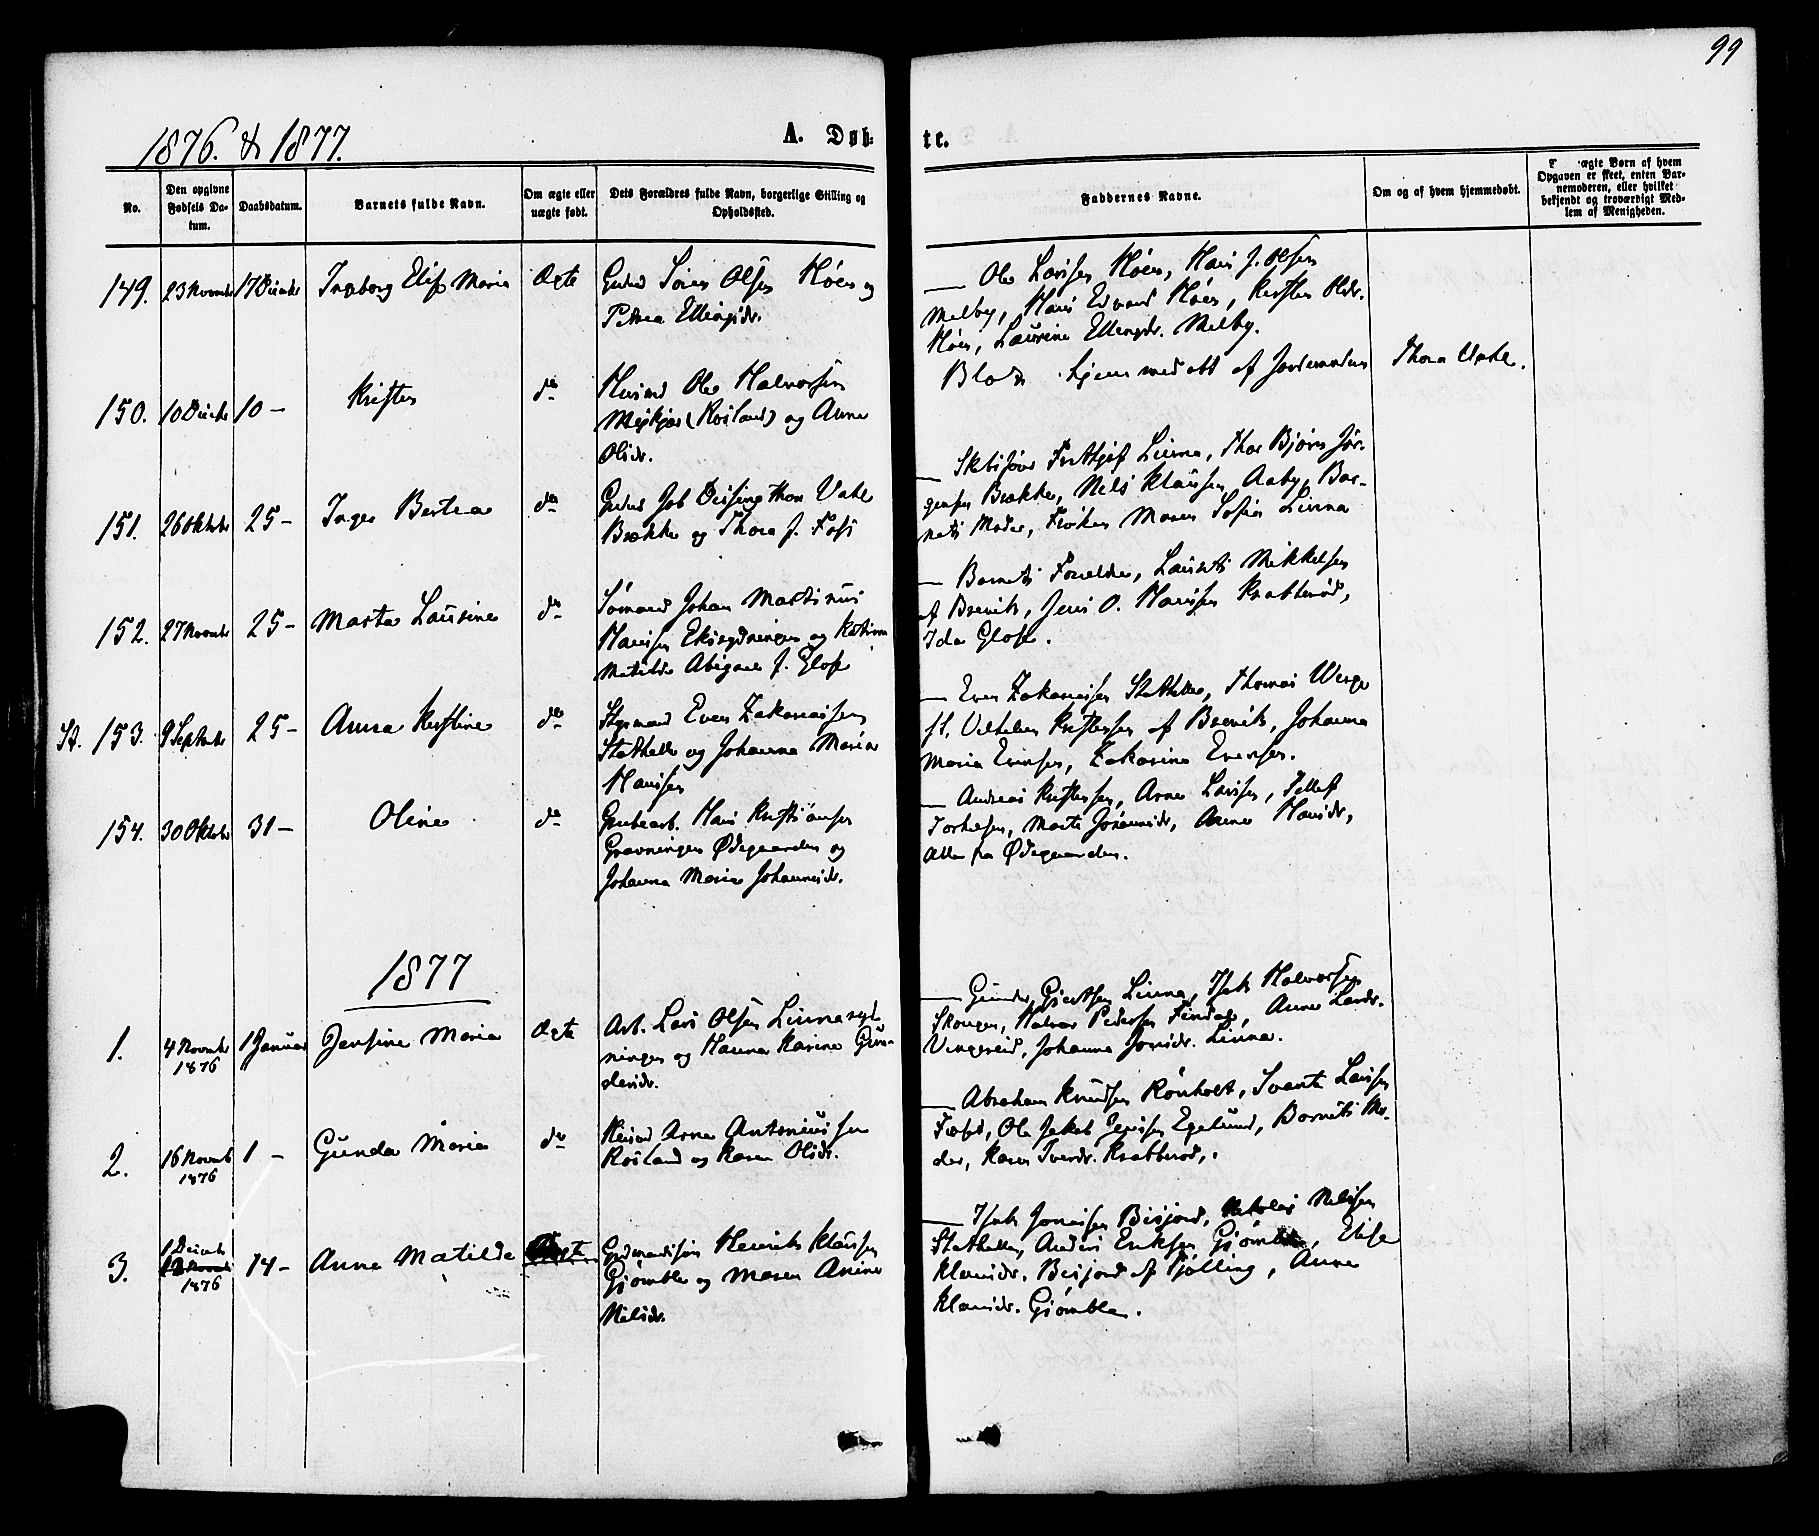 99
1876. & 1877.
A. Døb-
te.
No.
Den opgivne Fødsels Da-tum.
Daabsdatum.
Barnets fulde Navn.
Om ægte eller uægte født.
Dets Forældres fulde Navn, borgerlige Stilling og Opholdssted.
Faddernes Navne.
Om og af hvem hjemmedøbt.
ægte Børn af hvem Opgaven er skeet, enten Bar-nemoderen, eller hvilket bekjendt og troværdigt Med-lem af Menigheden.
149. 23 Novembr 17 Decembr Ingborg Elise Maria Ægte
Søren Olsen Høen og
Petrea Ellingsdr.
— Ole Larsen Høen, Hans J. Olsen
Melby, Hans Edvard Høen, Kirsten Olsdr.
Høen, Laurine Ellingsdr. Melby.
150. 10 Decembr 10 — Kristen do
Huusmd Ole Halvorsen
(Rosland) og Anne
Olsdr.
Blev hjemmedøbt af Jordemoderen
Thora Vahl.
151. 26 Oktobr 25 — Inger Bertea do
Job Dissingthon Vahl
Brække og Thora f. Foss
— Frithjof Linna, Thor Bjørn Jør-
gensen Brække, Nils Klausen Aaby, Bar-
nets Moder, Frøken Maren Sofie Linna
152. 27 Novembr 25 — Marta Laurine do
Sømand Johan Martinus
Hansen Eksrydningen og
Matilde Abigael f. Glose
— Barnets Forældre, Laurits Mikkelsen
af Brevik, Jens O. Hansen Krabberød,
Ida Glose.
St. 153. 9 Septembr 25 — Anna Kristine do
Styrmand Even Zakariassen
Stathelle og Johanna Maria
Hansen
— Even Zakariassen Stathelle, Thomas
Vilhelm Kristensen af Brevik, Johanna
Maria Evensen, Zakarine Evensen.
154. 30 Oktobr 31 — Oline do
Grubearb. Hans Kristiansen
Gravningen Ødegaarden og
Johanna Maria Johannesdr.
— Andreas Kristensen, Arne Larsen, Tellef
Torkelsen, Marte Johannesdr, Anne Hansdr,
Alle fra Ødegaarden.
1877
1. 4 Novembr 1876 1 Januar Jensine Maria Ægte
Arb. Lars Olsen Linnaryd-
ningen og Hanna Karine Gun-
dersdr.
— Gunder Gjertsen Linna, Isak Halvorsen
Skougen, Halvor Pedersen Findal, Anne Larsdr.
Vingereid, Johanne Jonsdr. Linna.
2. 16 Novemb 1876 1 — Gunda Maria do
Huusmd Arne Antoniussen
Rosland og Karen Olsdr.
— Abraham Knudsen Rønholt, Svante Larsen
Ole Jakob Jensen Egelund, Barnets Mo-
der, Karen Iversdr. Krabberød.
3. 1 Decembr 1876 14 — Anne Matilde Ægte
Gaardmandssøn Henrik Klausen
Gjømble og Maren Anine
Nilsdr.
— Isak Jonassen Bisjord, Nikolai Nilsen
Stathelle, Anders Eriksen Gjømble, Else
Klausdr. Bisjord af Tjølling, Anne
Klausdr. Gjømble.